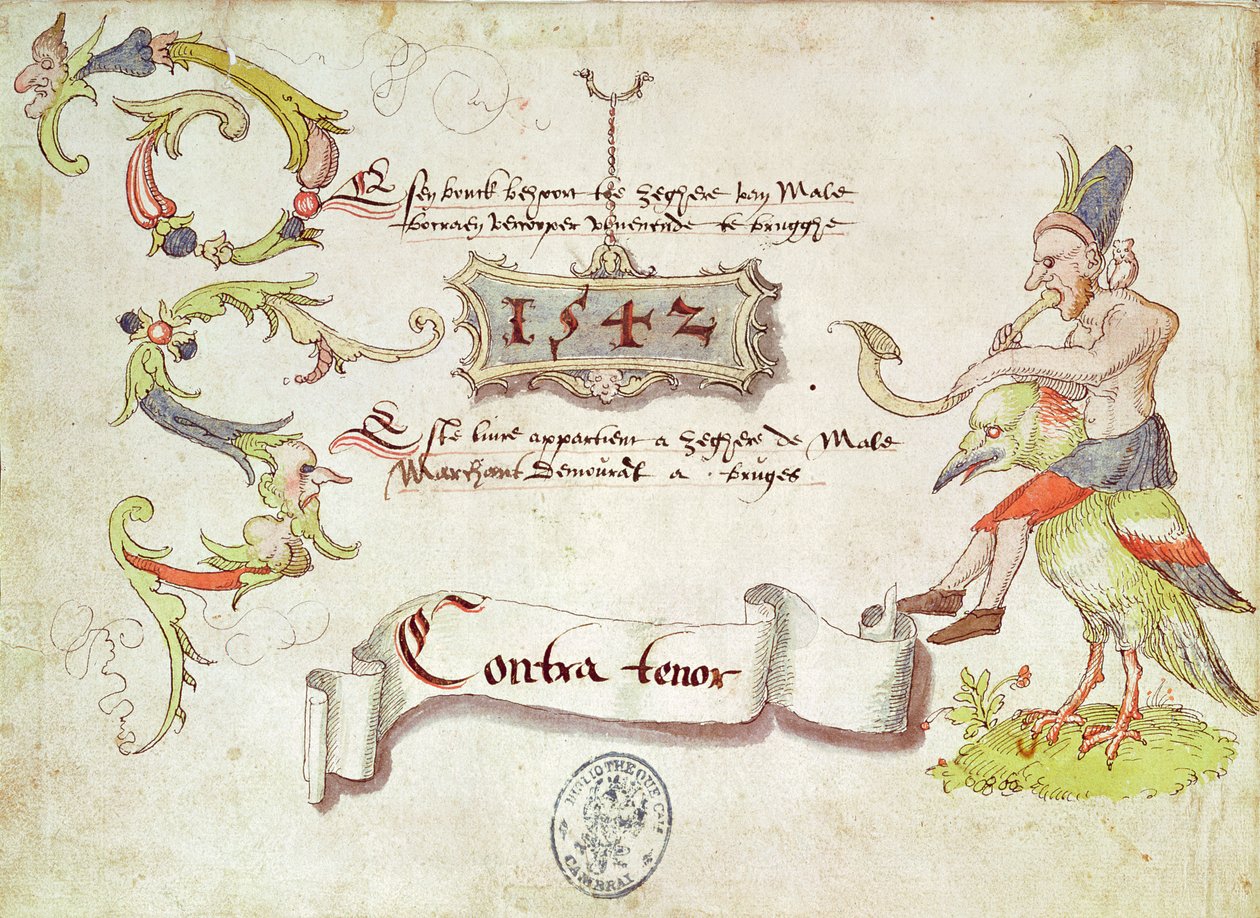 Desen bouck behoort toe Zeghere van Male
vercooper wonende te brugghe
1542
Este livre appartient a Zeghere de Male
Marchant Demourāt a bruges
Contra tenor
BIBLIOTHEQUE CAM
CAMBRAI